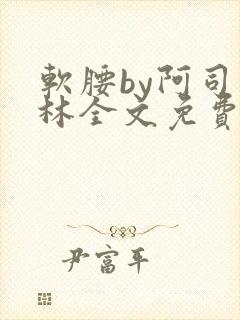 軟腰by阿司
林全文免費
尹富平